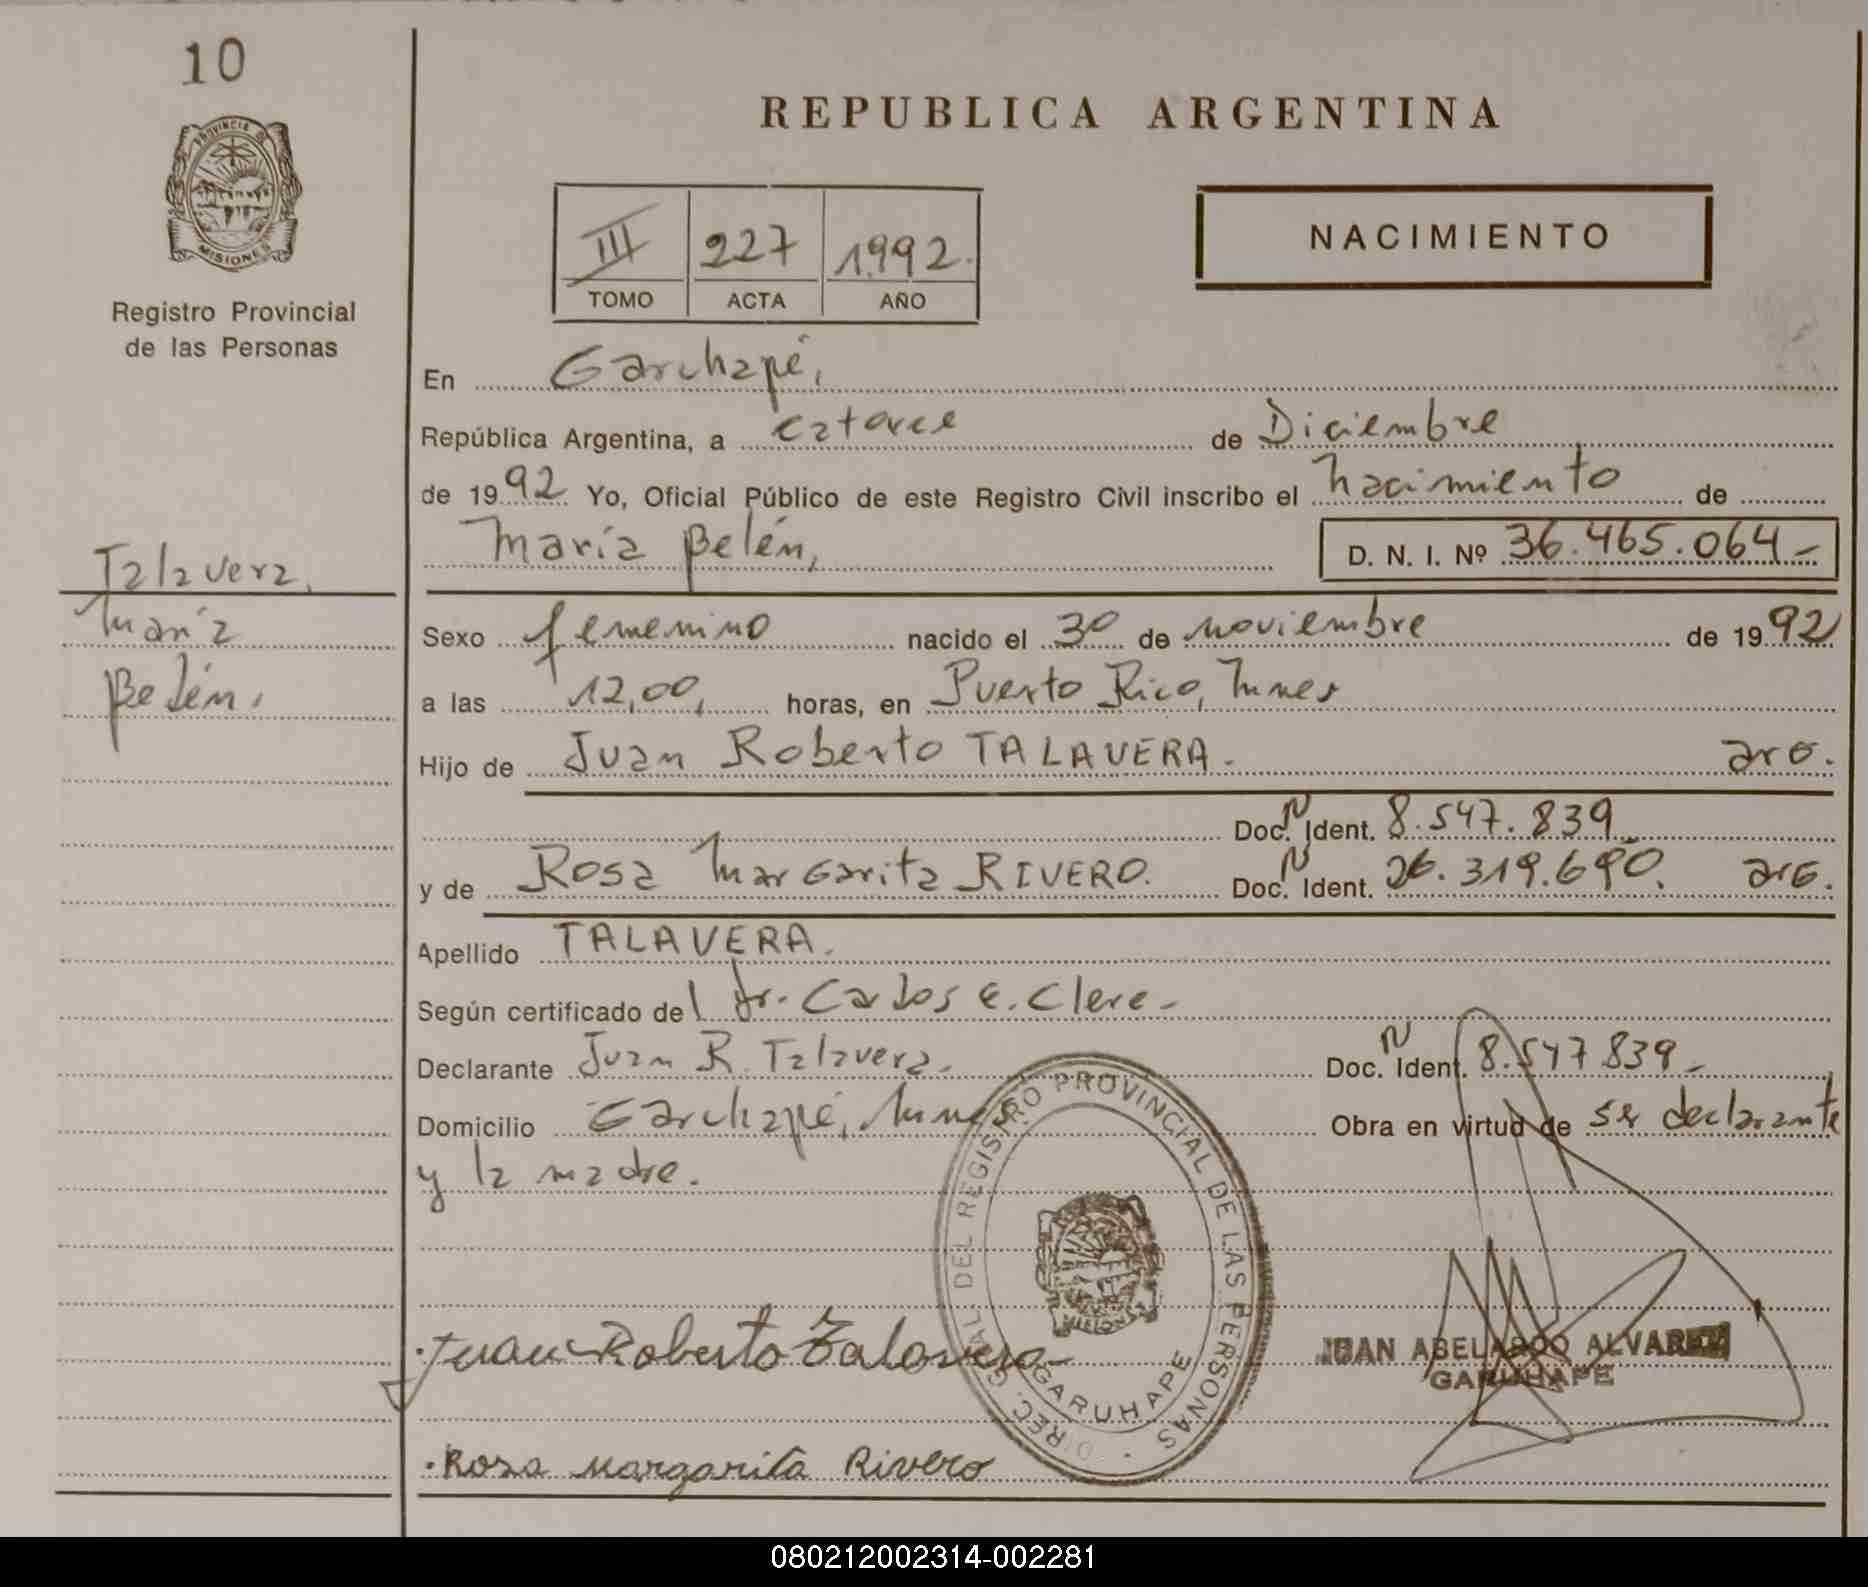 10
PROVINCIA DE
MISIONES
Registro Provincial
de las Personas
REPUBLICA ARGENTINA
III 227 1992.
TOMO ACTA AÑO
NACIMIENTO
En Garuhapé,
República Argentina, a catorce de Diciembre
de 1992. Yo, Oficial Público de este Registro Civil inscribo el nacimiento de
María Belén, D. N. I. Nº 36.465.064-
Talavera,
María
Belén.
Sexo femenino nacido el 30 de noviembre de 1992
a las 12,00, horas, en Puerto Rico, Mnes
Hijo de Juan Roberto TALAVERA. arg.
Doc. N Ident. 8.547.839
y de Rosa Margarita RIVERO. Doc. N Ident. 26.319.690. arg.
Apellido TALAVERA.
Según certificado del dr. Carlos E. Clere-
Declarante Juan R. Talavera. Doc. N Ident. 8.547839-
Domicilio Garuhapé, Mnes Obra en virtud de ser declarante
y la madre.
DIREC. GRAL. DEL REGISTRO PROVINCIAL DE LAS PERSONAS
MISIONES
GARUHAPE
Juan Roberto Talavera
JUAN ABELARDO ALVAREZ
GARUHAPE
Rosa Margarita Rivero
080212002314-002281